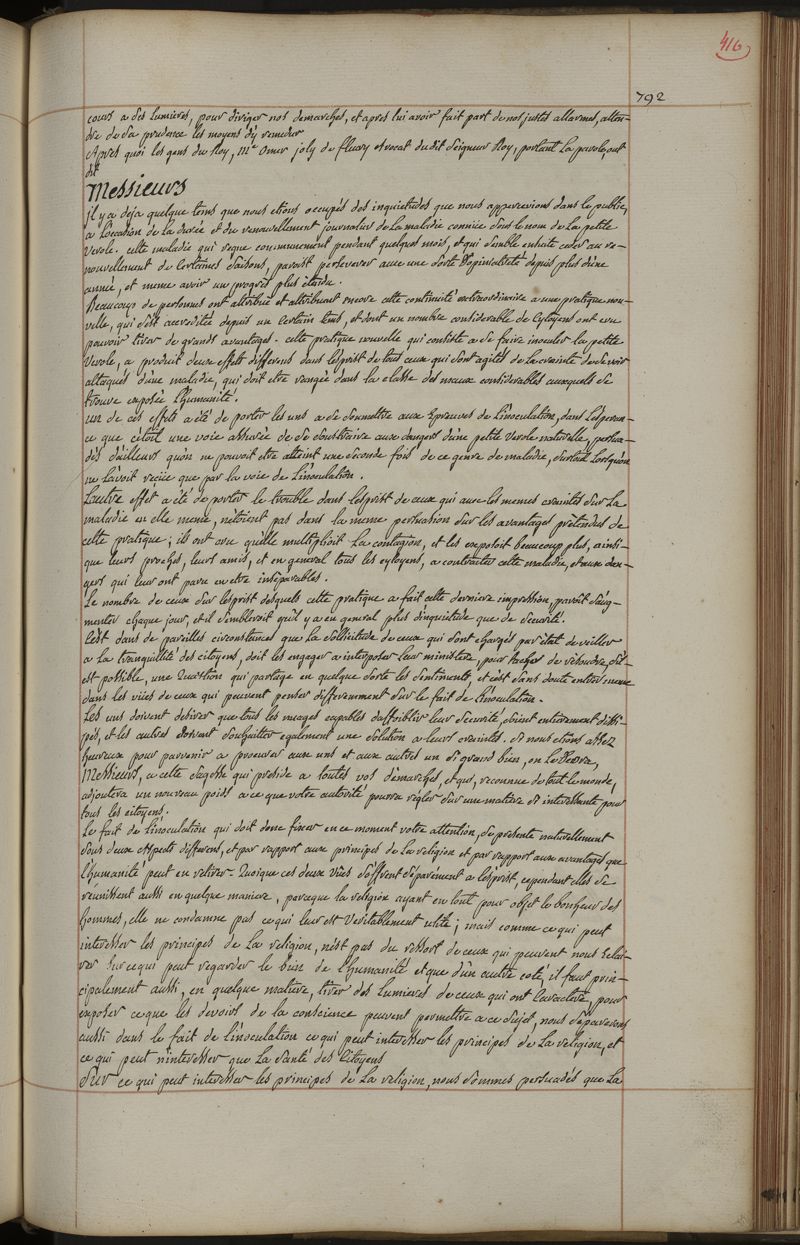 416
792
cours a des lumieres, pour diriger nos demarches, et apres lui avoir fait part de nos justes allarmes, atten-
dre de sa prudence les moyens d'y remedier
Apres quoi les gens du Roy, Me Omer joly de fleury avocat dudit seigneur Roy, portant la parole, ont
dit
Messieurs
il y a deja quelque tems que nous etions occupés des inquietudes que nous appercevions dans le public,
a l'occasion de la durée et du renouvellement journalier de la maladie connüe sous le nom de la petite
verole. cette maladie qui regne communement pendant quelques mois, et qui semble ensuite ceder au re-
nouvellement de certaines saisons, paroist perseverer avec une sorte d'opiniatreté depuis plus d'une
année, et meme avoir un progrès plus étendu.
Beaucoup de personnes ont attribué et attribuent encore cette continuité extraordinaire a une pratique nou-
velle, qui s'est accreditée depuis un certain tems, et dont un nombre considerable de Cytoyens ont cru
pouvoir tirer de grands avantages. cette pratique nouvelle qui consiste a se faire inoculer la petite
verole, a produit deux effets differens dans l'esprit de tous ceux qui sont agités de la crainte de se voir
attaqués d'une maladie, qui doit etre rangée dans la classe des maux considerables auxquels se
trouve exposée l'humanité.
un de ces effets a été de porter les uns a se soumettre aux Epreuves de l'inoculation, dans l'esperan-
ce que c'étoit une voie assurée de se soustraire aux dangers d'une petite verole naturelle, persua-
dés d'ailleurs qu'on ne pouvoit etre atteint une seconde fois de ce genre de maladie, surtout lorsqu'on
ne l'avoit reçüe que par la voie de l'inoculation.
L'autre effet a été de porter le trouble dans l'esprit de ceux qui avec les memes craintes sur la
maladie en elle meme, n'étoient pas dans la meme persuasion sur les avantages prétendus de
cette pratique; ils ont cru qu'elle multiplioit la contagion, et les exposoit beaucoup plus, ainsi-
que leurs proches, leurs amis, et en general tous les cytoyens, a contracter cette maladie, et aux dan-
gers qui leur ont paru en etre inséparables.
Le nombre de ceux sur l'esprit desquels cette pratique a fait cette derniere impression, paroit s'aug-
menter chaque jour, et il sembleroit qu'il y a en general plus d'inquiétude que de securité.
C'est dans de pareilles circonstances que la sollicitude de ceux qui sont chargés par état de veiller
a la tranquillité des citoyens, doit les engager a interposer leur ministere, pour tacher de resoudre, s'il-
est possible, une question qui partage en quelque sorte les sentimens, et c'est sans doute entrer meme
dans les vües de ceux qui peuvent penser differemment sur le fait de l'inoculation.
Les uns doivent desirer que tous les nuages capables d'affoiblir leur securité, soient entierement dissi-
pés, et les autres doivent souhaitter egalement une solution a leurs craintes. si nous etions assez
heureux pour parvenir a procurer aux uns et aux autres un si grand bien, on le devra,
Messieurs, a cette sagesse qui preside a toutes vos démarches, et qui, reconnue de tout le monde,
adjoutera un nouveau poids a ce que votre autorité pourra regler sur une matiere si interessante pour
tous les citoyens.
Le fait de l'inoculation qui doit donc fixer en ce moment votre attention, se presente naturellement
sous deux aspects differens, et par rapport aux principes de la religion et par rapport aux avantages que
l'humanité peut en retirer. Quoique ces deux vües s'offrent séparement a l'esprit, cependant elles se
réunissent aussi en quelque maniere, parceque la religion ayant en tout pour objet le bonheur des
hommes, elle ne condamne pas ce qui leur est veritablement utile; mais comme ce qui peut
interesser les principes de la religion, n'est pas du ressort de ceux qui peuvent nous éclai-
rer sur ce qui peut regarder le bien de l'humanité et que d'un autre coté, il faut prin-
cipalement aussi, en quelque matiere, tirer des lumieres de ceux qui ont caractere, pour
exposer ce que les devoirs de la conscience peuvent permettre a ce sujet, nous séparerons
aussi dans le fait de l'inoculation ce qui peut interesser les principes de la religion, et
ce qui peut n'interesser que la santé des Citoyens
Sur ce qui peut interesser les principes de la religion, nous sommes persuadés que la